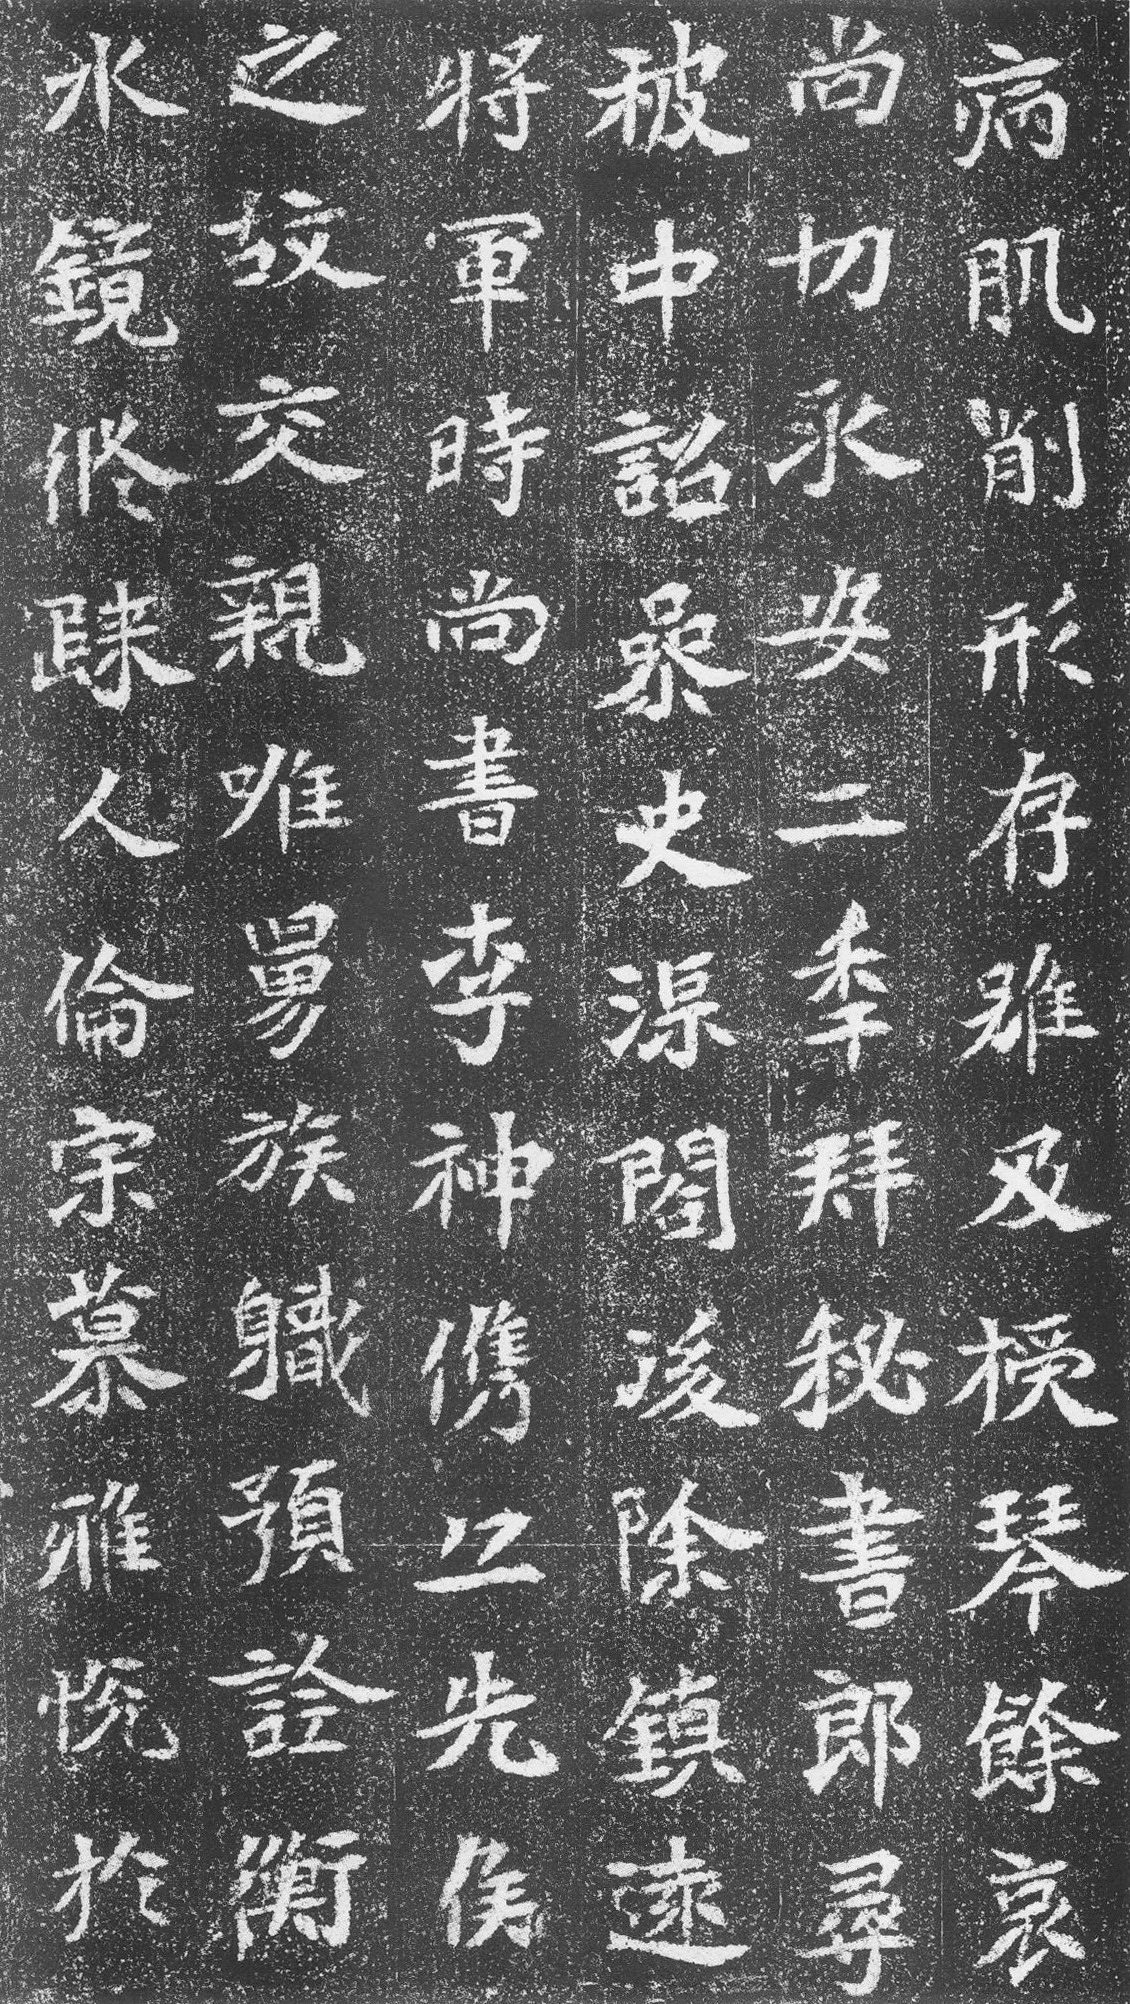 病肌削形存雖及榜琴餘哀
尚切永安二季拜秘書郎尋
被中詔參史渠閣後除鎮遠
將軍時尚書李神儁以先侯
之故交親唯舅族職預詮衡
水鏡脩踈人倫宗慕雅悅於